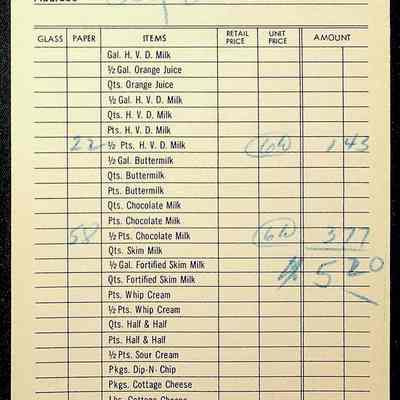 GLASS PAPER ITEMS RETAIL PRICE UNIT PRICE AMOUNT
Gal. H. V. D. Milk
½ Gal. Orange Juice
Qts. Orange Juice
½ Gal. H. V. D. Milk
Qts. H. V. D. Milk
Pts. H. V. D. Milk
22 ½ Pts. H. V. D. Milk 6½ 1 43
½ Gal. Buttermilk
Qts. Buttermilk
Pts. Buttermilk
Qts. Chocolate Milk
Pts. Chocolate Milk
58 ½ Pts. Chocolate Milk 6½ 3 77
Qts. Skim Milk
½ Gal. Fortified Skim Milk 5 20
Qts. Fortified Skim Milk
Pts. Whip Cream
½ Pts. Whip Cream
Qts. Half & Half
Pts. Half & Half
½ Pts. Sour Cream
Pkgs. Dip-N-Chip
Pkgs. Cottage Cheese
Lbs. Cottage Cheese